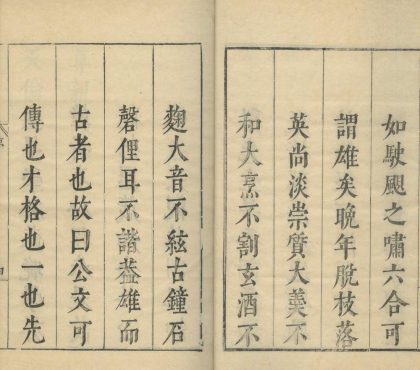 如駛飈之嘯六合可
謂雄矣晚年脫枝落
英尚淡崇質大羹不
和大烹不割玄酒不
麴大音不絃古鐘石
磬俚耳不諧葢雄而
古者也故曰公文可
傳也才格也一也先